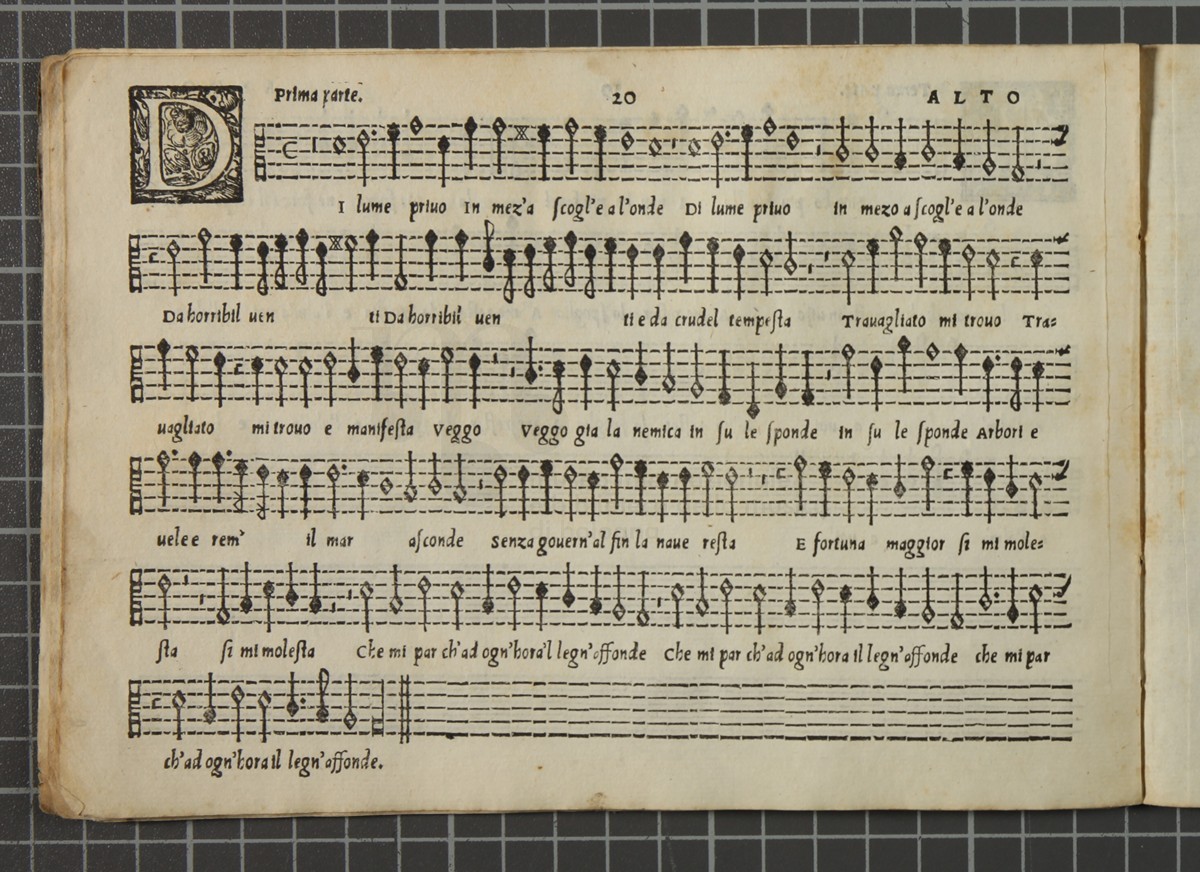 Prima parte. 20 ALTO
DI lume priuo In mez'a scogl'e a l'onde Di lume priuo in mezo a scogl'e a l'onde
Da horribil uen ti Da horribil uen ti e da crudel tempesta Trauagliato mi trouo Tra=
uagliato mi trouo e manifesta Veggo Veggo gia la nemica in su le sponde in su le sponde Arbori e
uele e rem' il mar asconde Senza gouern'al fin la naue resta E fortuna maggior si mi mole=
sta si mi molesta Che mi par ch'ad ogn'hora'l legn'affonde Che mi par ch'ad ogn'hora il legn'affonde che mi par
ch'ad ogn'hora il legn'affonde.